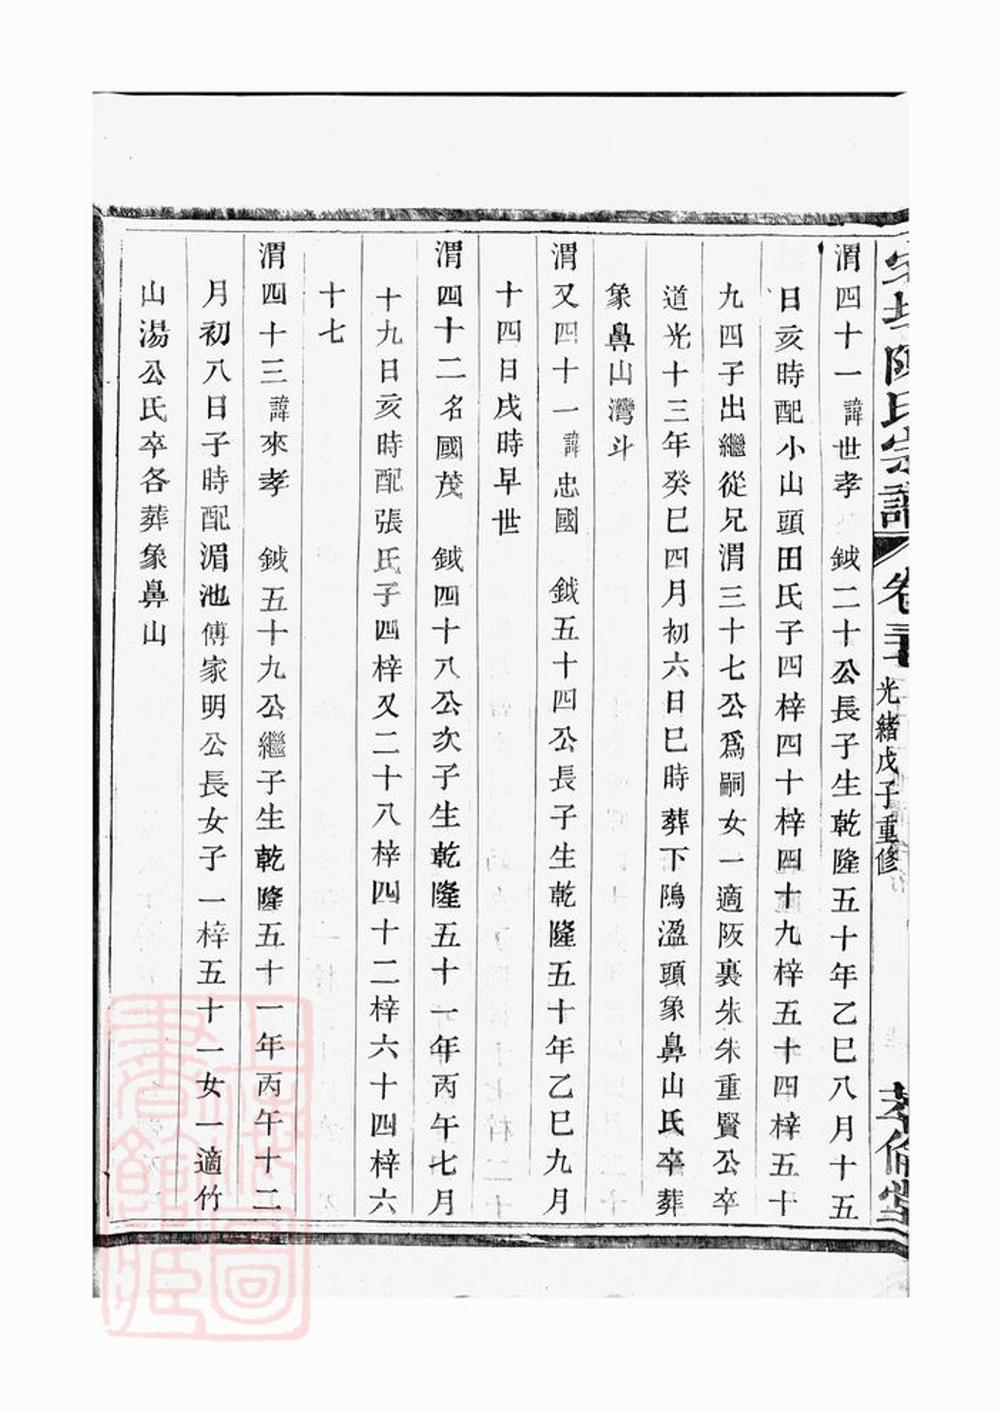 陳氏宗譜 卷 光緒戊子重修 倫堂
渭四十一諱世孝 鉞二十公長子生乾隆五十年乙巳八月十五
日亥時配小山頭田氏子四梓四十梓四十九梓五十四梓五十
九四子出繼從兄渭三十七公爲嗣女一適阪裏朱朱重賢公卒
道光十三年癸巳四月初六日巳時葬下隝溋頭象鼻山氏卒葬
象鼻山灣斗
渭又四十一諱忠國 鉞五十四公長子生乾隆五十年乙巳九月
十四日戌時早世
渭四十二名國茂 鉞四十八公次子生乾隆五十一年丙午七月
十九日亥時配張氏子四梓又二十八梓四十二梓六十四梓六
十七
渭四十三諱來孝 鉞五十九公繼子生乾隆五十一年丙午十二
月初八日子時配湄池傅家明公長女子一梓五十一女一適竹
山湯公氏卒各葬象鼻山
上海圖書館藏